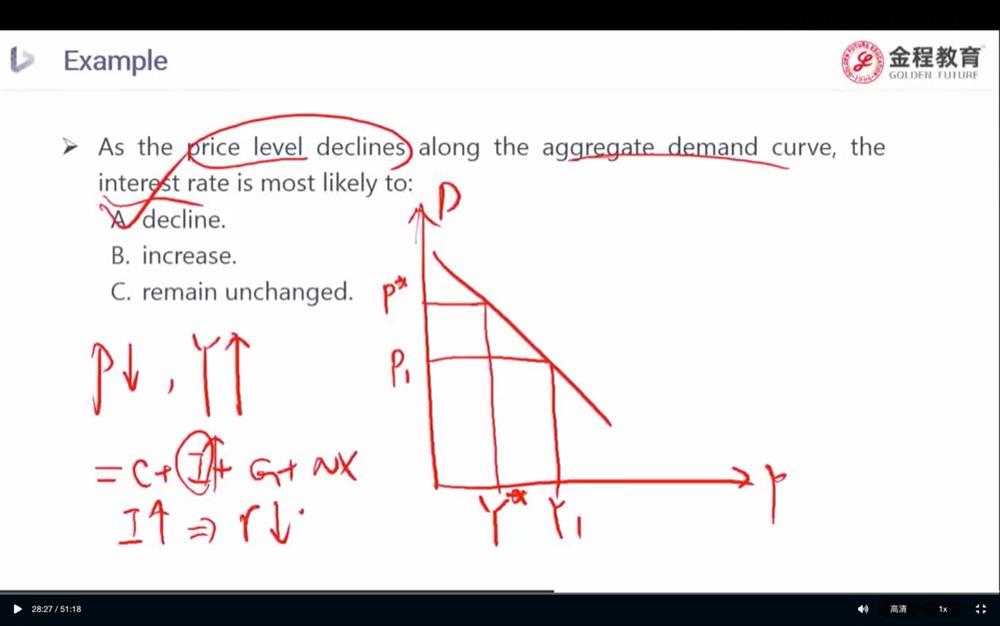 Example
金程教育
GOLDEN FUTURE
As the price level declines along the aggregate demand curve, the
interest rate is most likely to:
A. decline.
B. increase.
C. remain unchanged.
P
P*
P₁
P↓, Y↑
= C + I↑ + G + NX
I↑ ⇒ r↓
Y* Y₁
Y
28:27 / 51:18
高清
1x